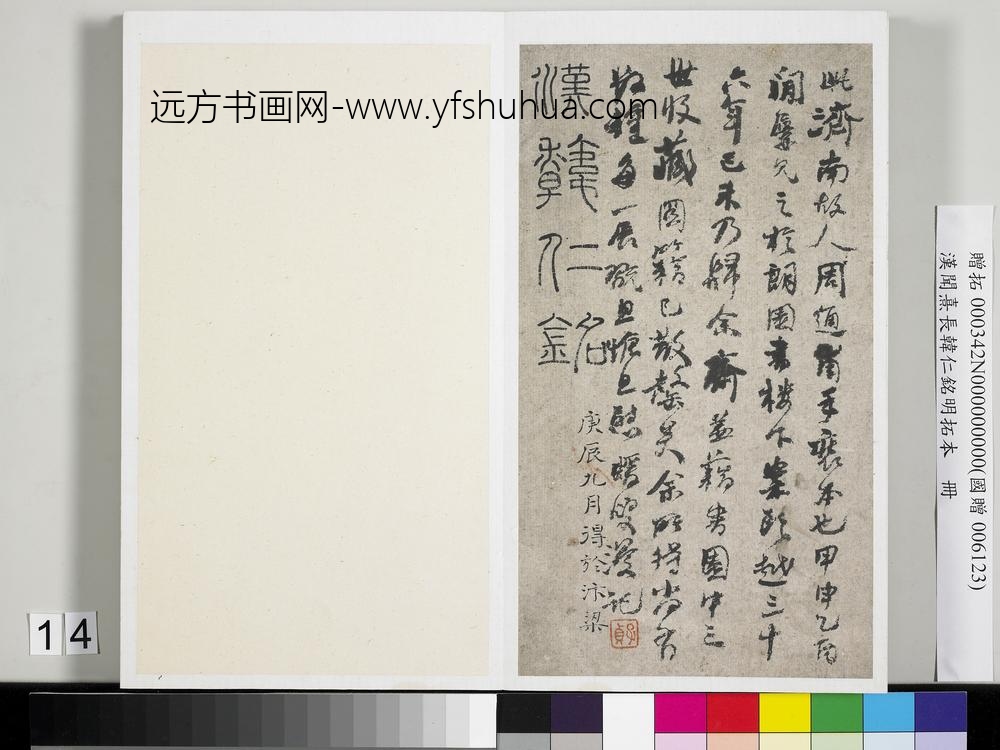 远方书画网-www.yfshuhua.com
此濟南故人周通甫手褱本也甲申乙酉
間屢見之於朗園書樓下案頭越三十
六年己未乃歸余齋蓋藉書園中三
世收藏圖籍已散盡矣余所得尚有
數種每一展翫且愴且慰暖叟漫記
漢韓仁銘
庚辰九月得於汴梁
贈拓 000342N000000000(國贈 006123)
漢聞熹長韓仁銘明拓本 冊
14